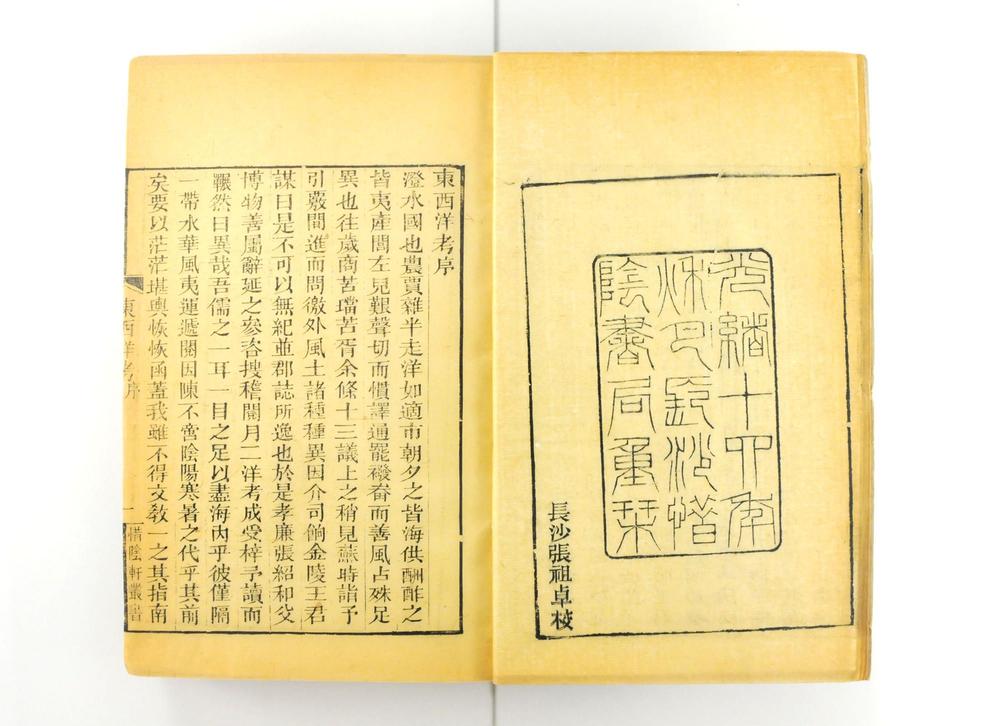 光緒十四年
秋月長沙惜
陰書局重栞
長沙張祖卓校
東西洋考序
澄水國也農賈雜半走洋如適市朝夕之皆海供酬酢之
皆夷產閭左兒艱聲切而慣譯通罷襏畚而善風占殊足
異也往歲商苦璫苦胥余條十三議上之稍見蘇時詣予
引覈間進而問徼外風土諸種種異因介司餉金陵王君
謀曰是不可以無紀並郡誌所逸也於是孝廉張紹和父
博物善屬辭延之參咨搜稽閱月二洋考成受梓予讀而
囅然曰異哉吾儒之一耳一目之足以盡海內乎彼僅隔
一帶水華風夷運遞閱因陳不啻陰陽寒暑之代乎其前
矣要以茫茫堪輿恢恢函蓋我雖不得文教一之其指南
東西洋考序 一 惜陰軒叢書